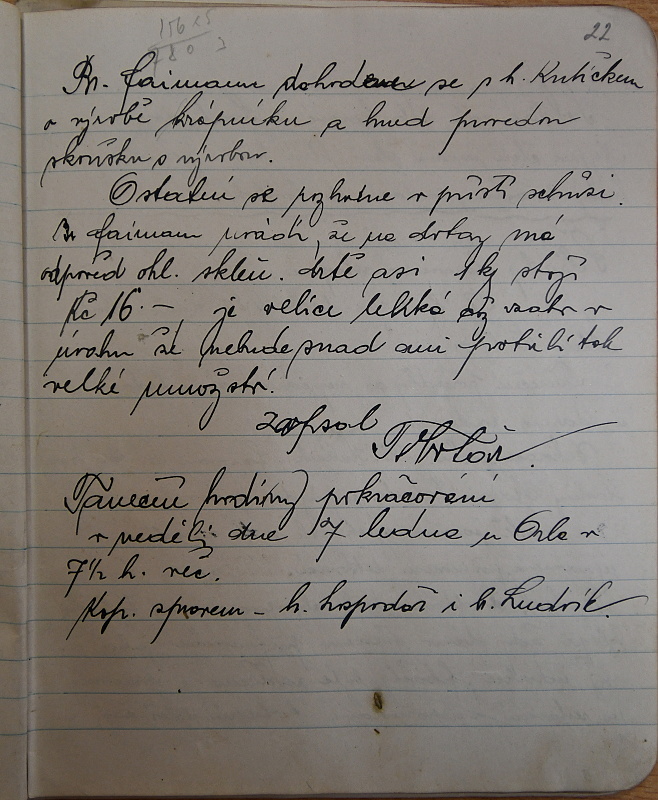 22
Br. Faimann dohodne se s h. Kutíčkem
o výrobě krápníku a hned provedou
zkoušku s výrobou.
Ostatní se rozhodne v příští schůzi.
Br Faimann uvádí, že na dotaz má
odpověď ohl. sklen. drtě asi 1 kg stojí
Kč 16.— je velice lehká
úvahu že nebude snad ani potřebí tak
velké množství.
zapsal
Taneční hodiny pokračování
v neděli dne 7 ledna u Orla v
7½ h. več.
Kop. správcem – b. hospodář i b. Ludvík.